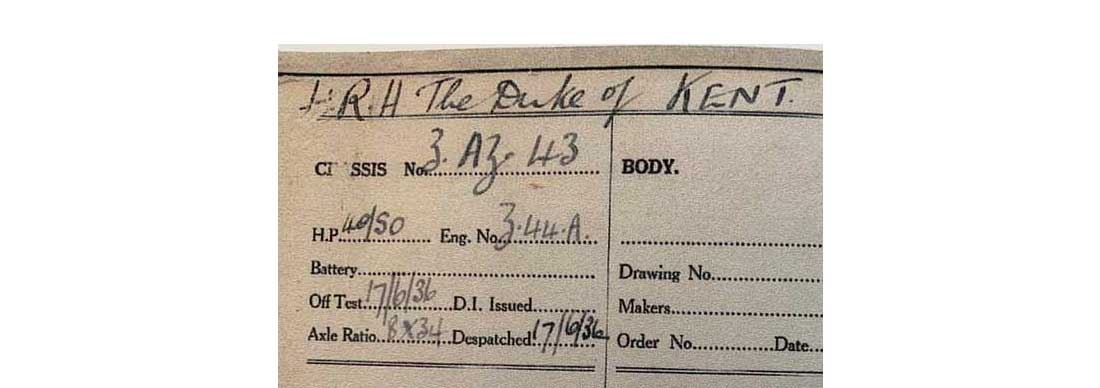 H.R.H The Duke of KENT.
CHASSIS No. 3.AZ.43
BODY.
H.P. 40/50 Eng. No. Z.44.A.
Battery
Drawing No.
Off Test 17/6/36 D.I. Issued
Makers
Axle Ratio. 8X34 Despatched 17/6/36
Order No. Date